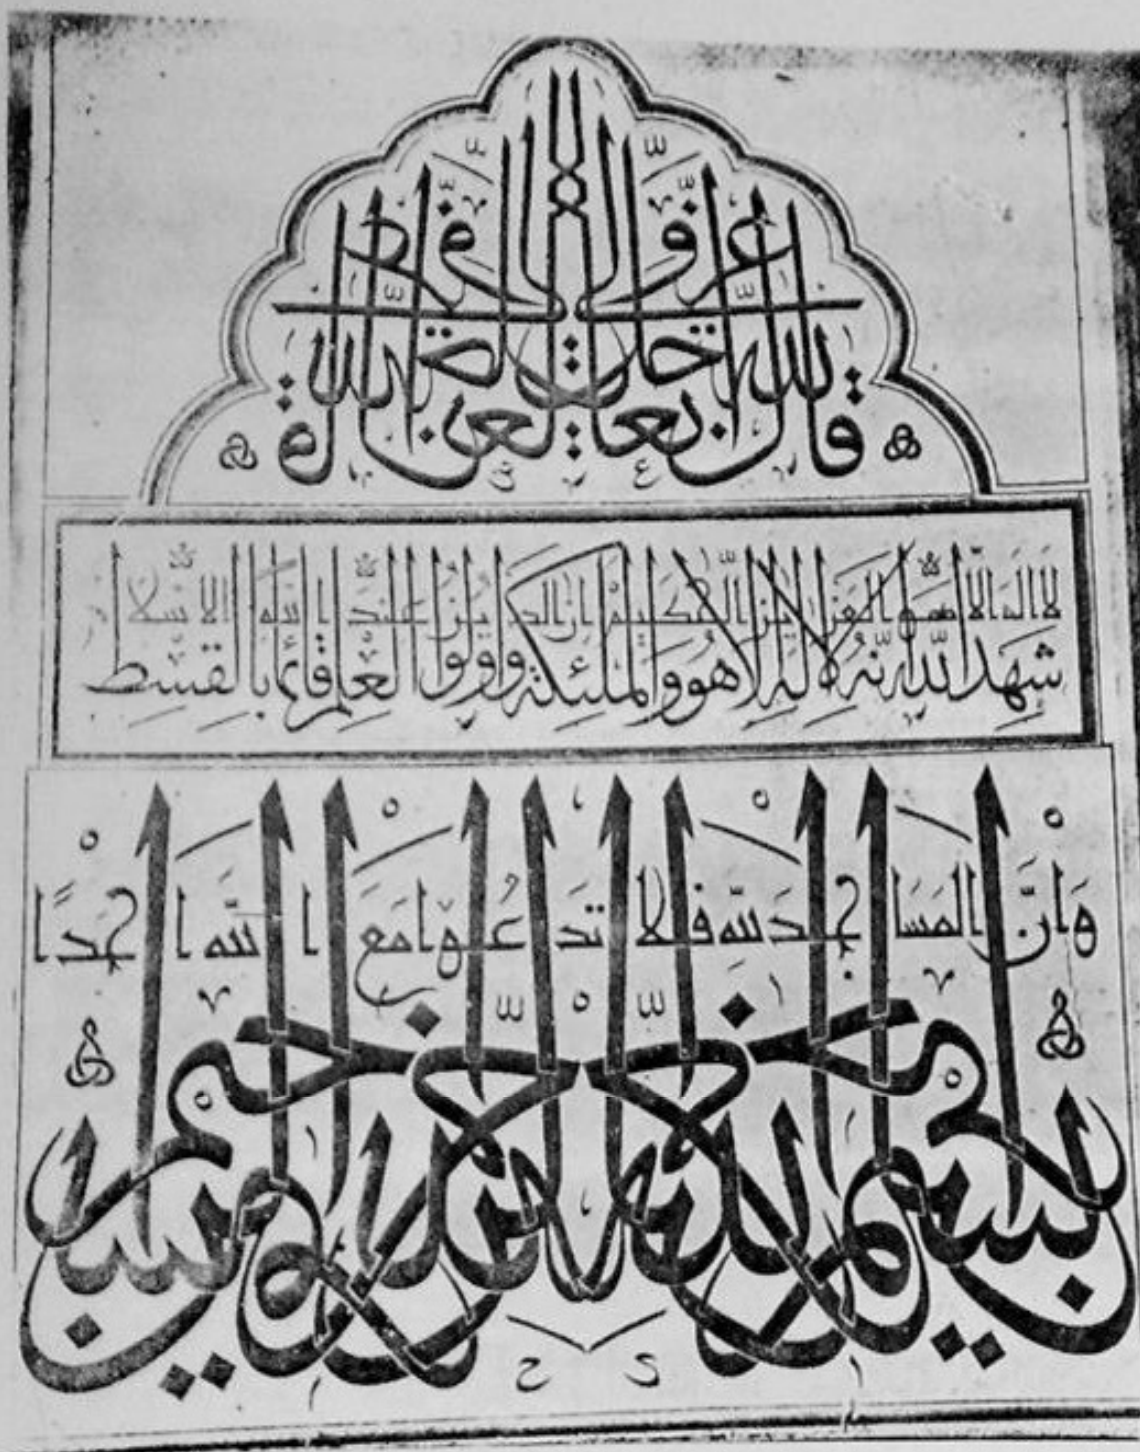 قال الله
شَهِدَ اللّٰه انّهُ لا اِلٰهَ الا هُوَ وَالملٰئِكة واولوا العِلمِ قائِمًا بالقِسْطِ
لَا اِلَهَ اِلّا هُوَ العَزِيز الحَكيمْ اِنَّ الدّينَ عِنْدَ اللّٰهِ الاسْلام
وَاَنَّ المَسَاجِدَ لِلّٰهِ فَلا تَدعُوا مَعَ اللّٰهِ اَحَدًا
بسم الله الرحمن الرحيم